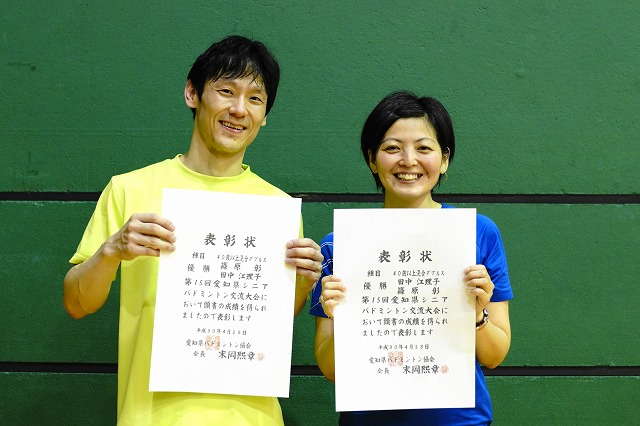 表彰状
種目 40歳以上混合ダブルス
優勝 篠原 彰
田中 江理子
第15回愛知県シニア
バドミントン交流大会に
おいて頭書の成績を得られ
ましたので表彰します
平成30年4月28日
愛知県バドミントン協会
会長 末岡熙章
表彰状
種目 40歳以上混合ダブルス
優勝 田中 江理子
篠原 彰
第15回愛知県シニア
バドミントン交流大会に
おいて頭書の成績を得られ
ましたので表彰します
平成30年4月28日
愛知県バドミントン協会
会長 末岡熙章